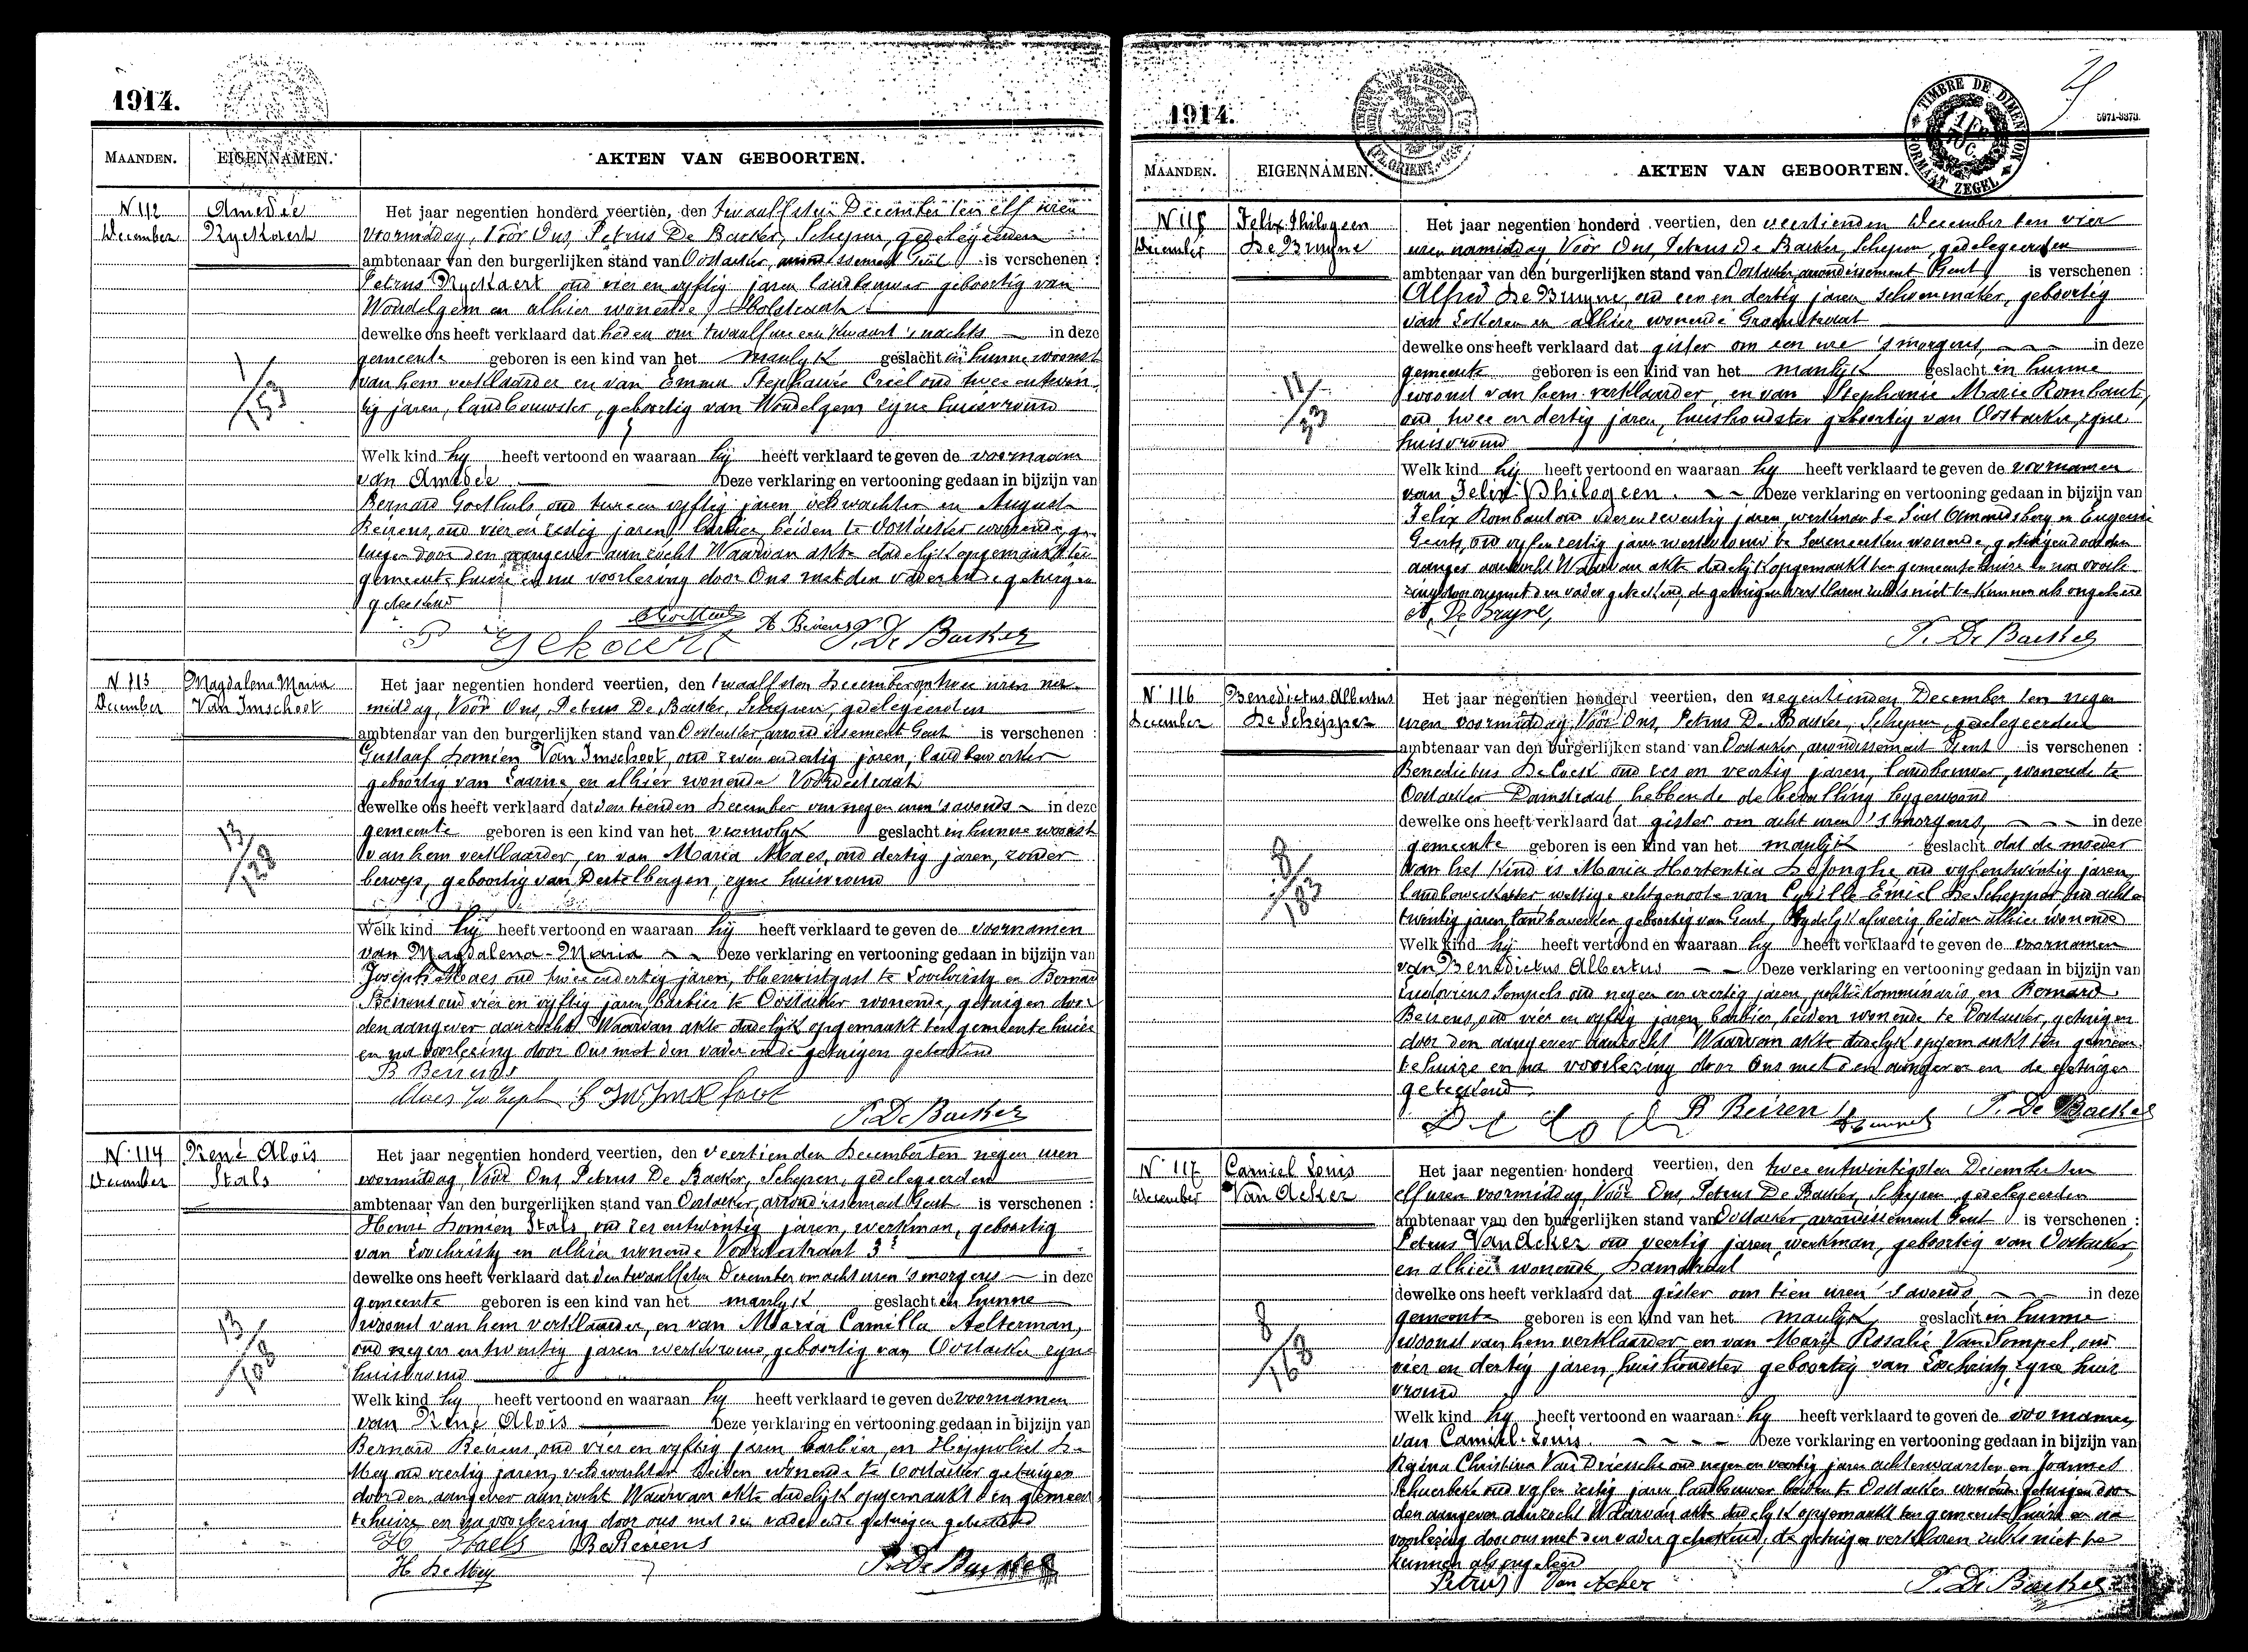 1914.
MAANDEN. EIGENNAMEN. AKTEN VAN GEBOORTEN.
N 112 Amedée
December Ryckaert
Het jaar negentien honderd veertien, den twaalfsten December ten elf uren
voormiddag, Vóór Ons, Petrus De Backer, Schepen, gedelegeerden
ambtenaar van den burgerlijken stand van Oostacker, arrondissement Gent is verschenen :
Petrus Ryckaert oud vier en vyftig jaren landbouwer geboortig van
Wondelgem en alhier wonende,
dewelke ons heeft verklaard dat heden om twaalf ure een kwaart 's nachts in deze
gemeente geboren is een kind van het manlyk geslacht in hunne woonst
van hem verklaarder en van Emma Stephanie Criel oud twee en twin-
tig jaren, landbouwster, geboortig van Wondelgem zyne huisvrouw
1/153
Welk kind hy heeft vertoond en waaraan hij heeft verklaard te geven de voornaam
van Amedée Deze verklaring en vertooning gedaan in bijzijn van
Bernard Goethals, oud twee en vyftig jaren, veldwachter en August
Beirens, oud vier en zestig jaren, barbier, beiden te Oostacker wonende, ge-
tuigen door den aangever aanzocht Waarvan akte dadelijk opgemaakt ten
gemeente huize en na voorlezing door Ons met den vader en de getuigen
geteekend
P Rykaert A Beirens P. De Backer
N 113 Magdalena Maria
December Van Imschoot
Het jaar negentien honderd veertien, den twaalfsten December om twee uren na-
middag, Vóór Ons, Petrus De Backer, Schepen, gedelegeerden
ambtenaar van den burgerlijken stand van Oostacker, arrondissement Gent is verschenen :
Gustaaf Domien Van Imschoot, oud zeven en dertig jaren, landbewerker
geboortig van Laarne, en alhier wonende Voordestraat
dewelke ons heeft verklaard dat den tienden December om negen uren 's avonds in deze
gemeente geboren is een kind van het vrouwlyk geslacht in hunne woonst
van hem verklaarder, en van Maria Maes, oud dertig jaren, zonder
beroep, geboortig van Destelbergen, zyne huisvrouw
13/128
Welk kind hij heeft vertoond en waaraan hij heeft verklaard te geven de voornamen
van Magdalena-Maria Deze verklaring en vertooning gedaan in bijzijn van
Joseph Maes oud twee en dertig jaren, bloemistgast te Loochristy en Bernard
Beirens oud vier en vyftig jaren, barbier te Oostacker wonende, getuigen door
den aangever aanzocht Waarvan akte dadelijk opgemaakt ten gemeente huize
en na voorlezing door Ons met den vader en de getuigen geteekend
B Beirens
Maes Joseph P. De Backer
N. 114 René Aloïs
December Stals
Het jaar negentien honderd veertien, den veertienden December ten negen uren
voormiddag, Vóór Ons, Petrus De Backer, Schepen, gedelegeerden
ambtenaar van den burgerlijken stand van Oostacker, arrondissement Gent is verschenen :
Henri Domien Stals, oud zes en twintig jaren, werkman, geboortig
van Loochristy en alhier wonende Voordestraat 3
dewelke ons heeft verklaard dat den twaalfsten December om acht uren 's morgens in deze
gemeente geboren is een kind van het manlyk geslacht in hunne
woonst van hem verklaarder, en van Maria Camilla Aelterman,
oud negen en twintig jaren werkvrouw, geboortig van Oostacker zyne
huisvrouw
13/108
Welk kind hy heeft vertoond en waaraan hy heeft verklaard te geven de voornamen
van René Aloïs Deze verklaring en vertooning gedaan in bijzijn van
Bernard Beirens, oud vier en vyftig jaren barbier, en Hippoliet De
Mey oud veertig jaren, veldwachter beiden wonende te Oostacker getuigen
door den aangever aanzocht Waarvan akte dadelijk opgemaakt ten gemeen-
tehuize en na voorlezing door ons met den vader en de getuigen geteekend
H Staels B Beirens
H De Mey P. De Backer
1914.
TIMBRE DE DIMENSION
FORMAAT ZEGEL
5971-8373.
MAANDEN. EIGENNAMEN. AKTEN VAN GEBOORTEN.
N 115 Felix Philogeen
December De Bruyne
Het jaar negentien honderd veertien, den veertienden December ten vier
uren namiddag, Vóór Ons, Petrus De Backer, Schepen, gedelegeerden
ambtenaar van den burgerlijken stand van Oostacker, arrondissement Gent is verschenen :
Alfred De Bruyne, oud een en dertig jaren schoenmaker, geboortig
van Lokeren en alhier wonende Groenstraat
dewelke ons heeft verklaard dat gister om een ure 's morgens, in deze
gemeente geboren is een kind van het manlijk geslacht in hunne
woonst van hem verklaarder, en van Stephanie Marie Rombaut,
oud twee en dertig jaren, huishoudster geboortig van Oostacker, zyne
huisvrouw
Welk kind hij heeft vertoond en waaraan hy heeft verklaard te geven de voornamen
van Felix Philogeen. Deze verklaring en vertooning gedaan in bijzijn van
Felix Rombaut oud vier en zeventig jaren, werkman te Sint Amandsberg en Eugenie
Geerts, oud vyf en zestig jaren werkvrouw te wonende, getuigen door den
aangever aanzocht Waarvan akte dadelijk opgemaakt ten gemeentehuize en na voorle-
zing door ons met den vader geteekend, de getuigen verklaren zulks niet te kunnen als ongeleerd
A. De Bruyne,
P. De Backer
N. 116 Benedictus Albertus
December De Schepper
Het jaar negentien honderd veertien, den negentienden December ten negen
uren voormiddag, Vóór Ons, Petrus De Backer, Schepen, gedelegeerden
ambtenaar van den burgerlijken stand van Oostacker, arrondissement Gent is verschenen :
Benedictus De Cock oud zes en veertig jaren, landbouwer, wonende te
Oostacker Damstraat, hebbende de bevalling bygewoond
dewelke ons heeft verklaard dat gister om acht uren 's morgens, in deze
gemeente geboren is een kind van het manlijk geslacht dat de moeder
van het kind is Maria Hortentia De Jonghe, oud vyf en twintig jaren,
landbewerkster wettige echtgenoote van Cyrille Emiel De Schepper, oud acht en
twintig jaren, landbewerker, geboortig van Gent, tydelyk afwezig, beiden alhier wonende
8/183
Welk kind hij heeft vertoond en waaraan hy heeft verklaard te geven de voornamen
van Benedictus Albertus Deze verklaring en vertooning gedaan in bijzijn van
Ludovicus Sempels oud negen en veertig jaren, politiekommissaris, en Bernard
Beirens, oud vier en vyftig jaren, barbier, beiden wonende te Oostacker, getuigen
door den aangever aanzocht Waarvan akte dadelyk opgemaakt ten gemeen-
tehuize en na voorlezing door Ons met den aangever en de getuigen
geteekend
De Cock B Beirens Sempels P. De Backer
N. 117 Camiel Louis
December Van Acker
Het jaar negentien honderd veertien, den twee en twintigsten December ten
elf uren voormiddag, Vóór Ons, Petrus De Backer, Schepen gedelegeerden
ambtenaar van den burgerlijken stand van Oostacker, arrondissement Gent is verschenen :
Petrus Van Acker oud veertig jaren, werkman, geboortig van Oostacker,
en alhier wonende, Damstraat
dewelke ons heeft verklaard dat gister om tien uren 's avonds, in deze
gemeente geboren is een kind van het manlijk geslacht in hunne
woonst van hem verklaarder en van Marie Rosalie Van Sompel, oud
vier en dertig jaren, huishoudster geboortig van Loochristy, zyne huis
vrouw
8/168
Welk kind hy heeft vertoond en waaraan hy heeft verklaard te geven de voornamen
van Camiel-Louis Deze verklaring en vertooning gedaan in bijzijn van
Regina Christina Van Driessche oud negen en veertig jaren achterwaarster en Joannes
oud vyf en zestig jaren landbouwer beiden te Oostacker wonende getuigen door
den aangever aanzocht Waarvan akte dadelyk opgemaakt ten gemeente huize en na
voorlezing door ons met den vader geteekend, de getuigen verklaren zulks niet te
kunnen als ongeleerd
Petrus Van Acker P. De Backer